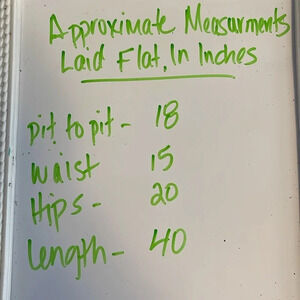 Approximate Measurments
Laid Flat, In Inches
pit to pit - 18
waist 15
Hips - 20
length - 40